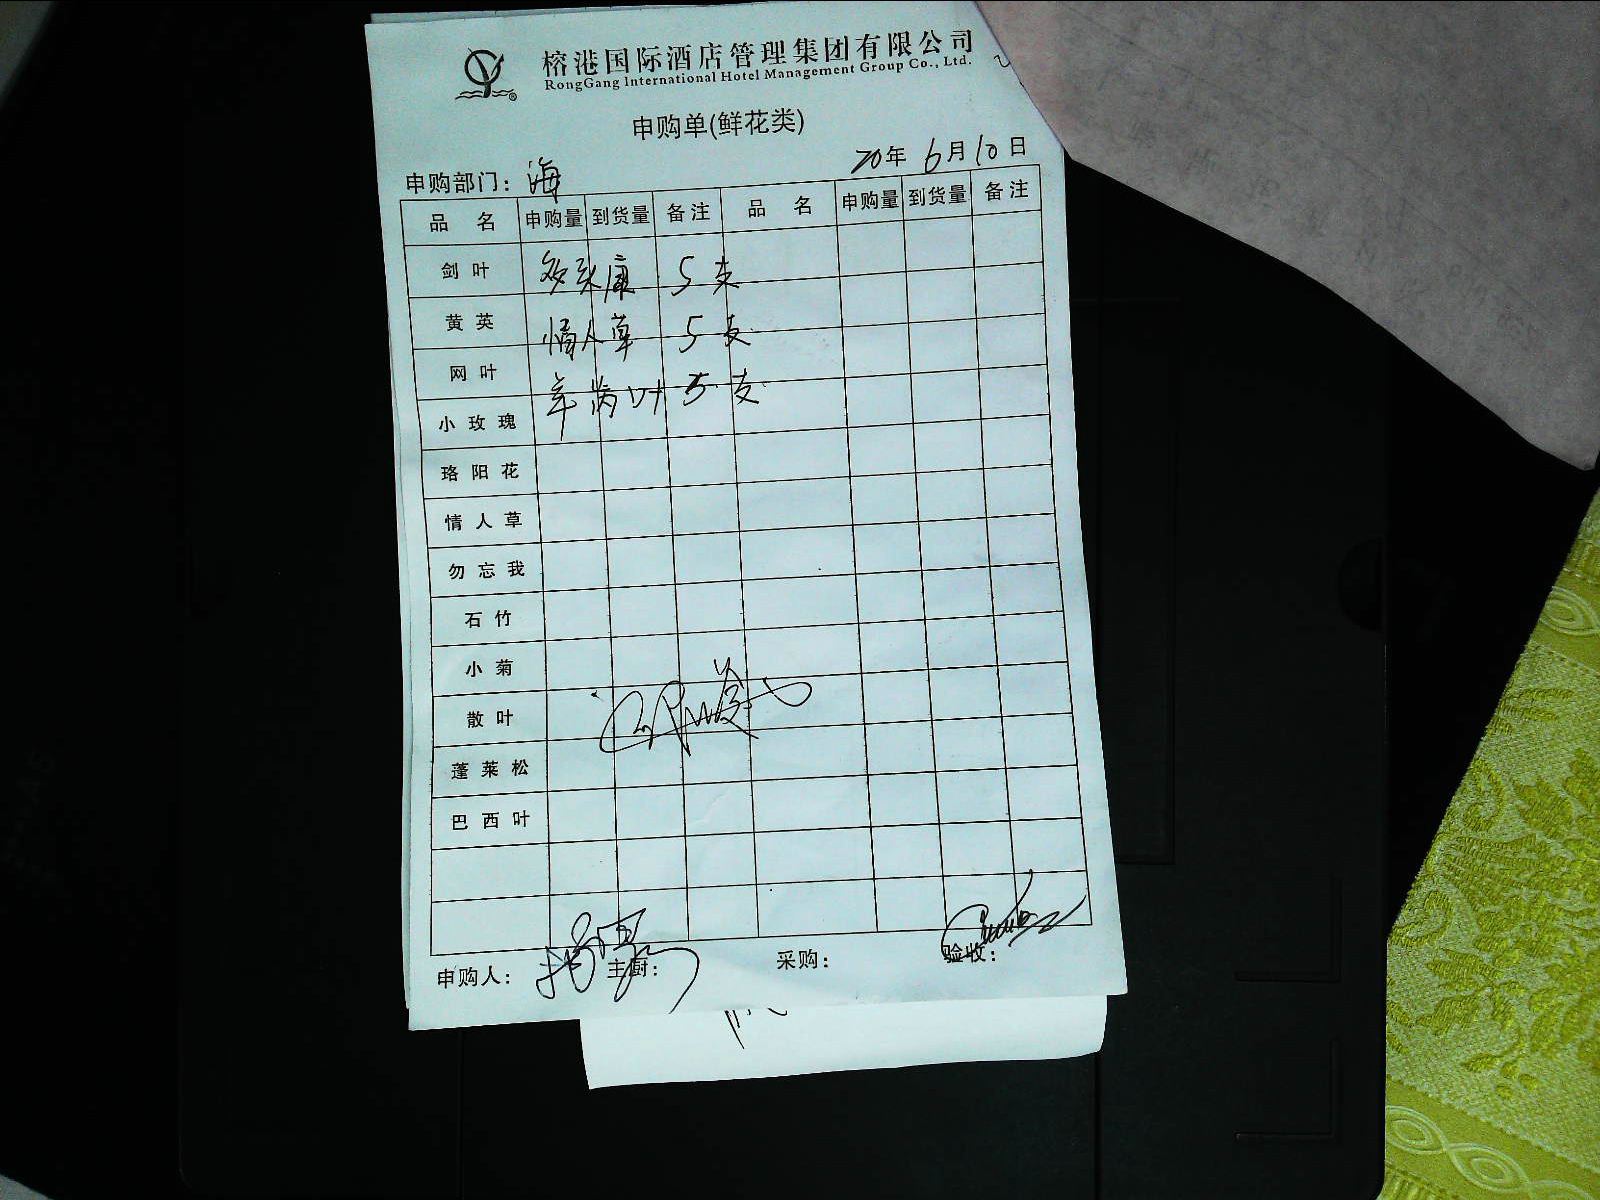 榕港国际酒店管理集团有限公司
RongGang International Hotel Management Group Co., Ltd.
申购单(鲜花类)
20年 6月10日
申购部门: 海
品 名 申购量 到货量 备注 品 名 申购量 到货量 备注
剑叶 康 5支
黄英 情人草 5支
网叶
叶 5支
小玫瑰
珞阳花
情人草
勿忘我
石竹
小菊
散叶
蓬莱松
巴西叶
申购人: 主厨: 采购: 验收: